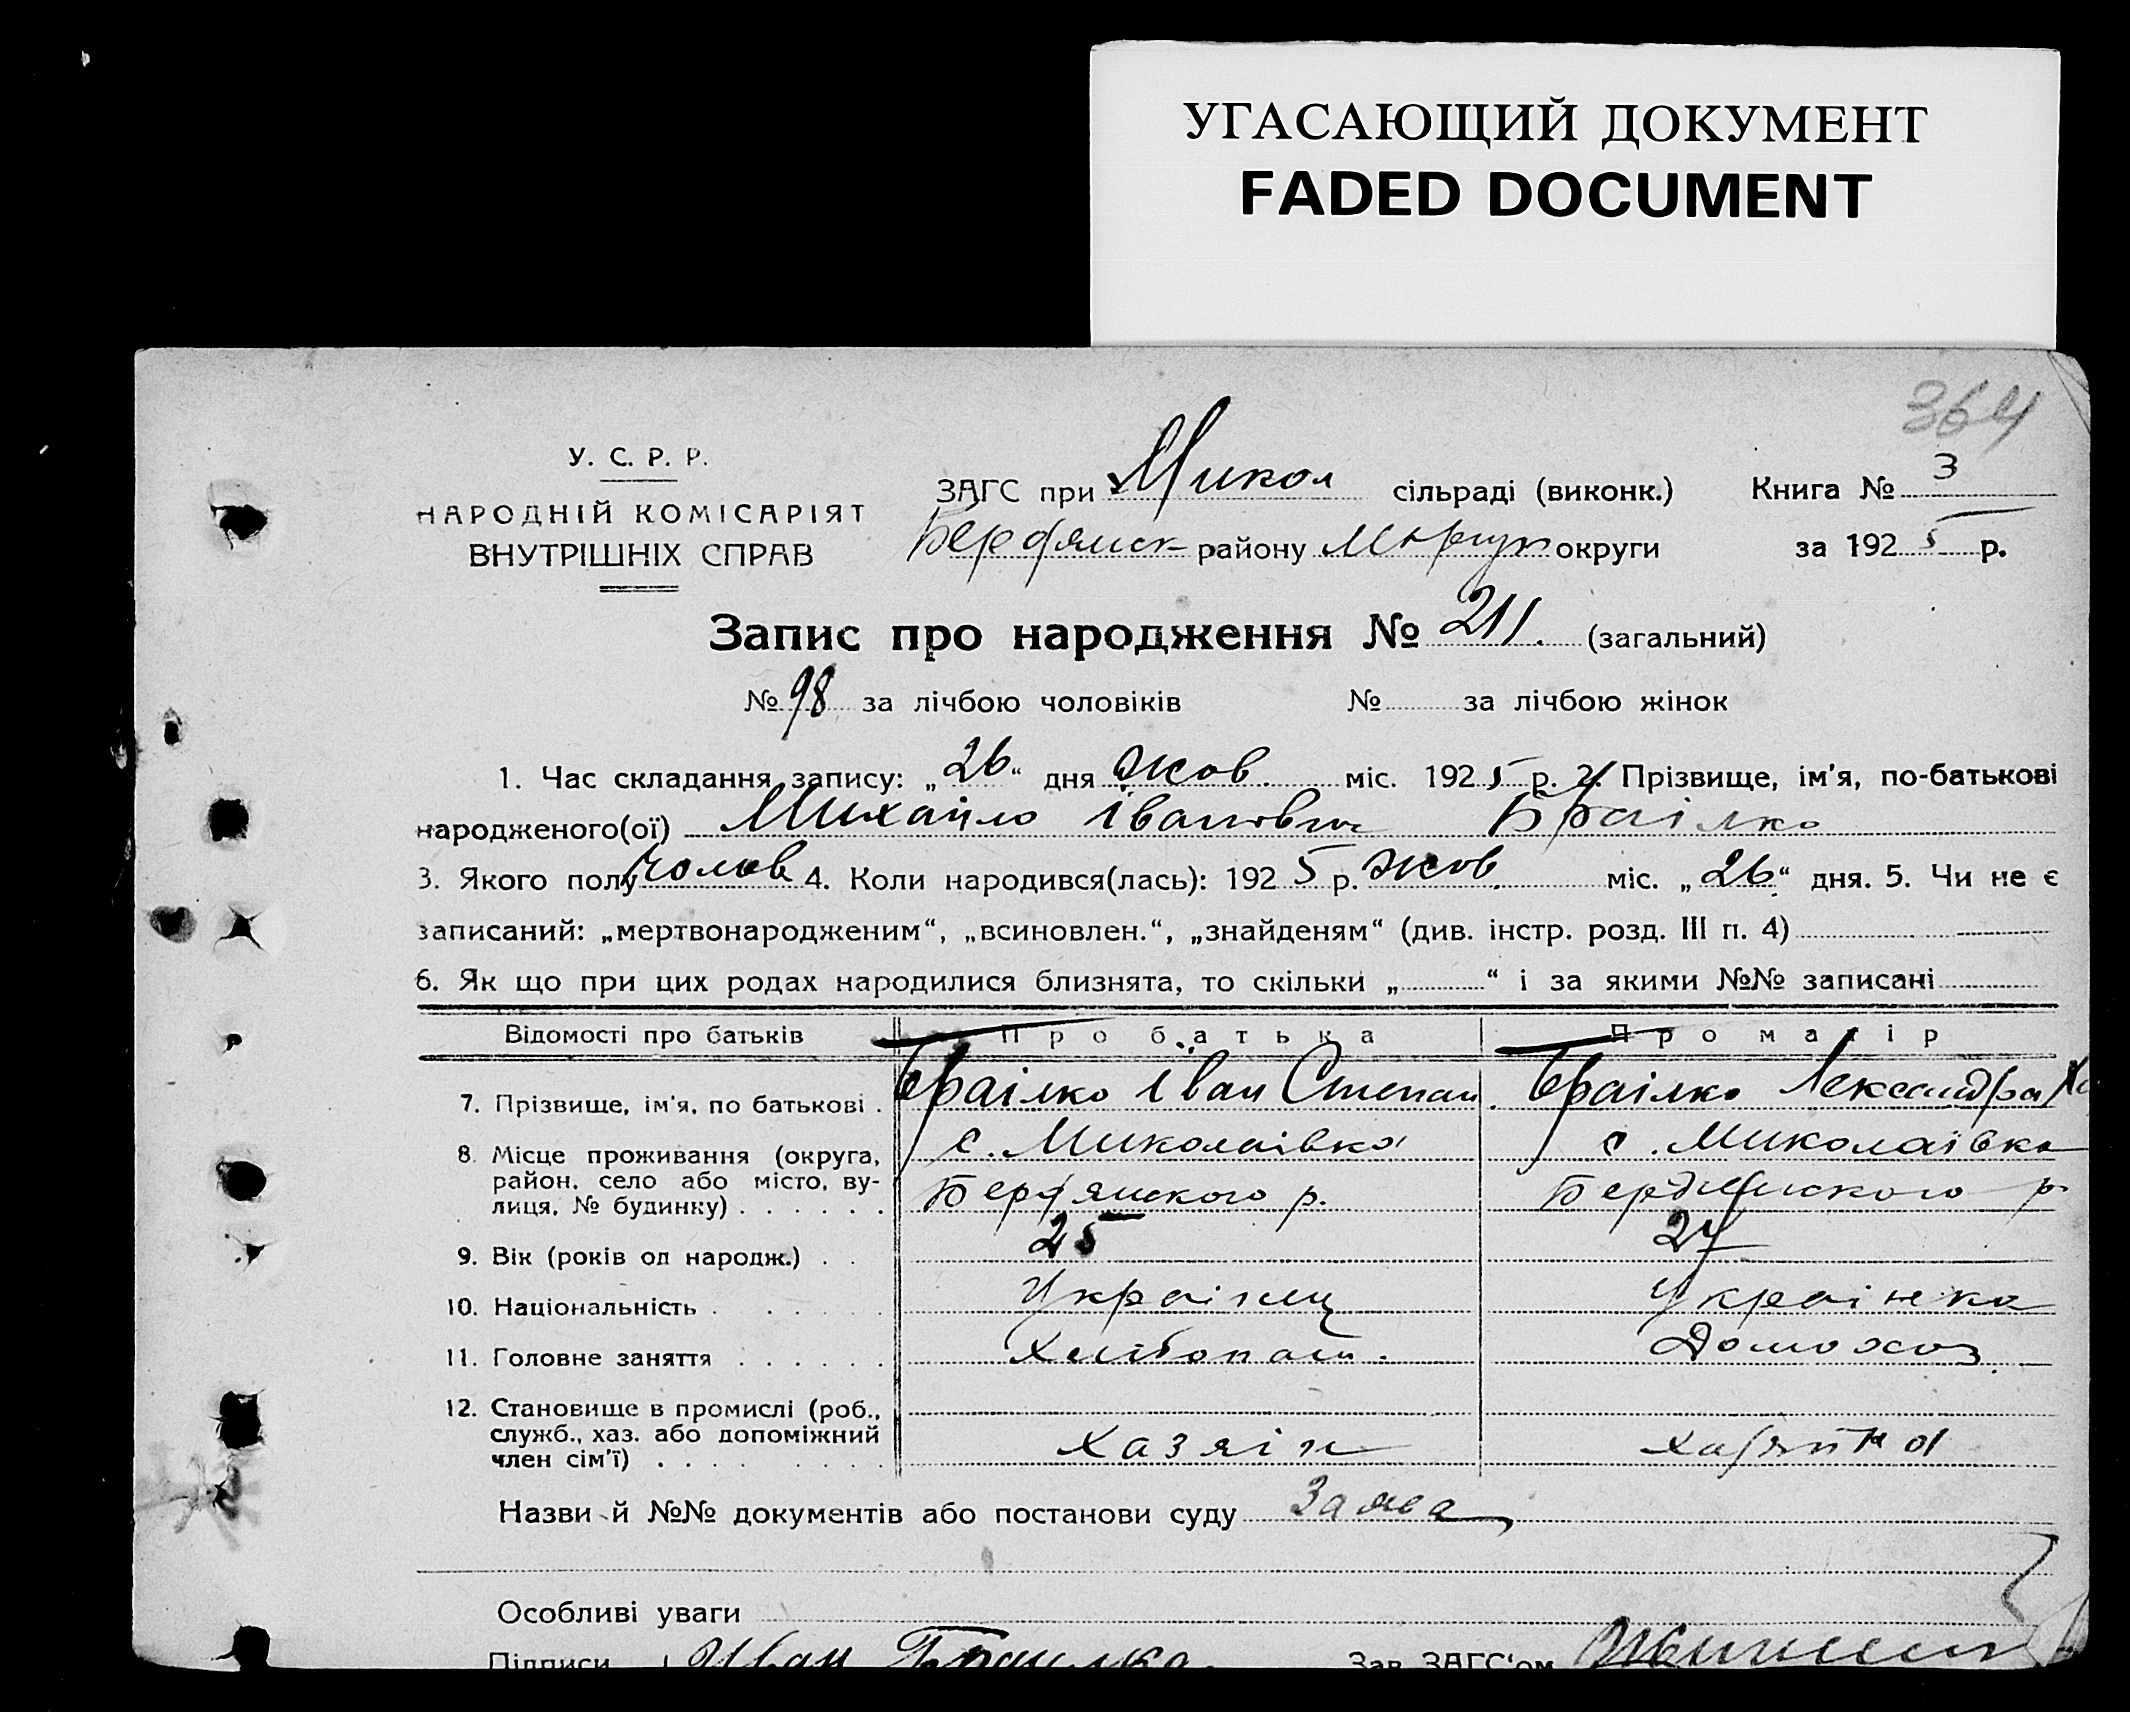 УГАСАЮЩИЙ ДОКУМЕНТ
FADED DOCUMENT
364
У. С. Р. Р.
НАРОДНІЙ КОМІСАРІЯТ
ВНУТРІШНІХ СПРАВ
ЗАГС при Микол сільраді (виконк.) Книга № 3
Бердянск району округи за 1925 р.
Запис про народження № 211. (загальний)
№ 98 за лічбою чоловіків № за лічбою жінок
1. Час складання запису: „26“ дня Жов. міс. 1925 р. 2. Прізвище, ім'я, по-батькові
народженого(ої) Михайло Іванович Браілко
3. Якого полу чолов 4. Коли народився(лась): 1925 р. Жов. міс. „26“ дня. 5. Чи не є
записаний: „мертвонародженим“, „всиновлен.“, „знайденям“ (див. інстр. розд. III п. 4)
6. Як що при цих родах народилися близнята, то скільки „ “ і за якими №№ записані
Відомості про батьків Про батька Про матір
7. Прізвище, ім'я, по батькові . Браілко Іван Степан. Браілко Лександра
8. Місце проживання (округа, с. Миколаівка с. Миколаївка
район, село або місто, ву-
лиця, № будинку) . . . . . . Бердянского р. Бердянского р.
9. Вік (років од народж.) . . 25 27
10. Національність . . . . Украінец Украінка
11. Головне заняття . . . . . . Хлібопаш. Домохоз.
12. Становище в промислі (роб.,
служб., хаз. або допоміжний
член сім'ї) . . . . . . . . Хазяін Хазяйка
Назви й №№ документів або постанови суду Заява
Особливі уваги
Підписи Иван Браилка. Зав. ЗАГС'ом